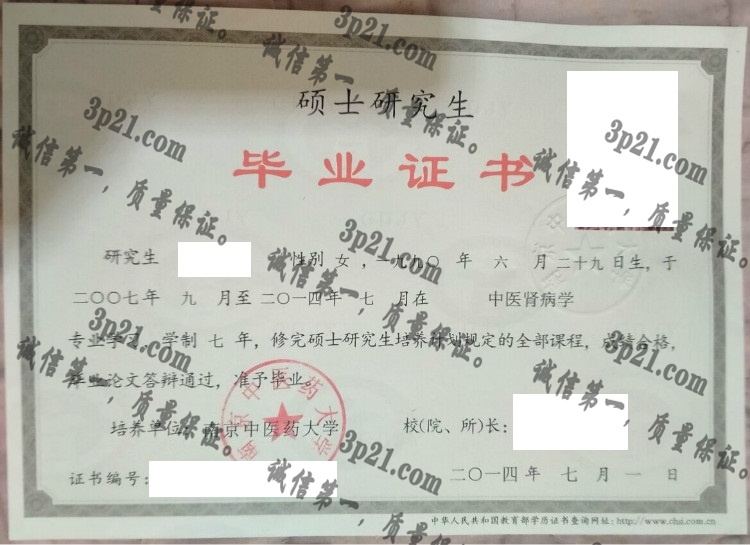 硕士研究生
毕业证书
研究生 性别 女，一九九〇年 六 月二十九日生，于
二〇〇七年 九 月至二〇一四年 七 月在 中医肾病学
专业学习，学制 七 年，修完硕士研究生培养计划规定的全部课程，成绩合格，
毕业论文答辩通过，准予毕业。
培养单位：南京中医药大学 校(院、所)长：
证书编号： 二〇一四年 七 月 一 日
中华人民共和国教育部学历证书查询网址：http://www.chsi.com.cn
南京中医药大学
3p21.com
诚信第一，质量保证。
3p21.com
诚信第一，质量保证。
3p21.com
诚信第一，质量保证。
3p21.com
诚信第一，质量保证。
3p21.com
诚信第一，质量保证。
3p21.com
诚信第一，质量保证。
3p21.com
诚信第一，质量保证。
3p21.com
诚信第一，质量保证。
3p21.com
诚信第一，质量保证。